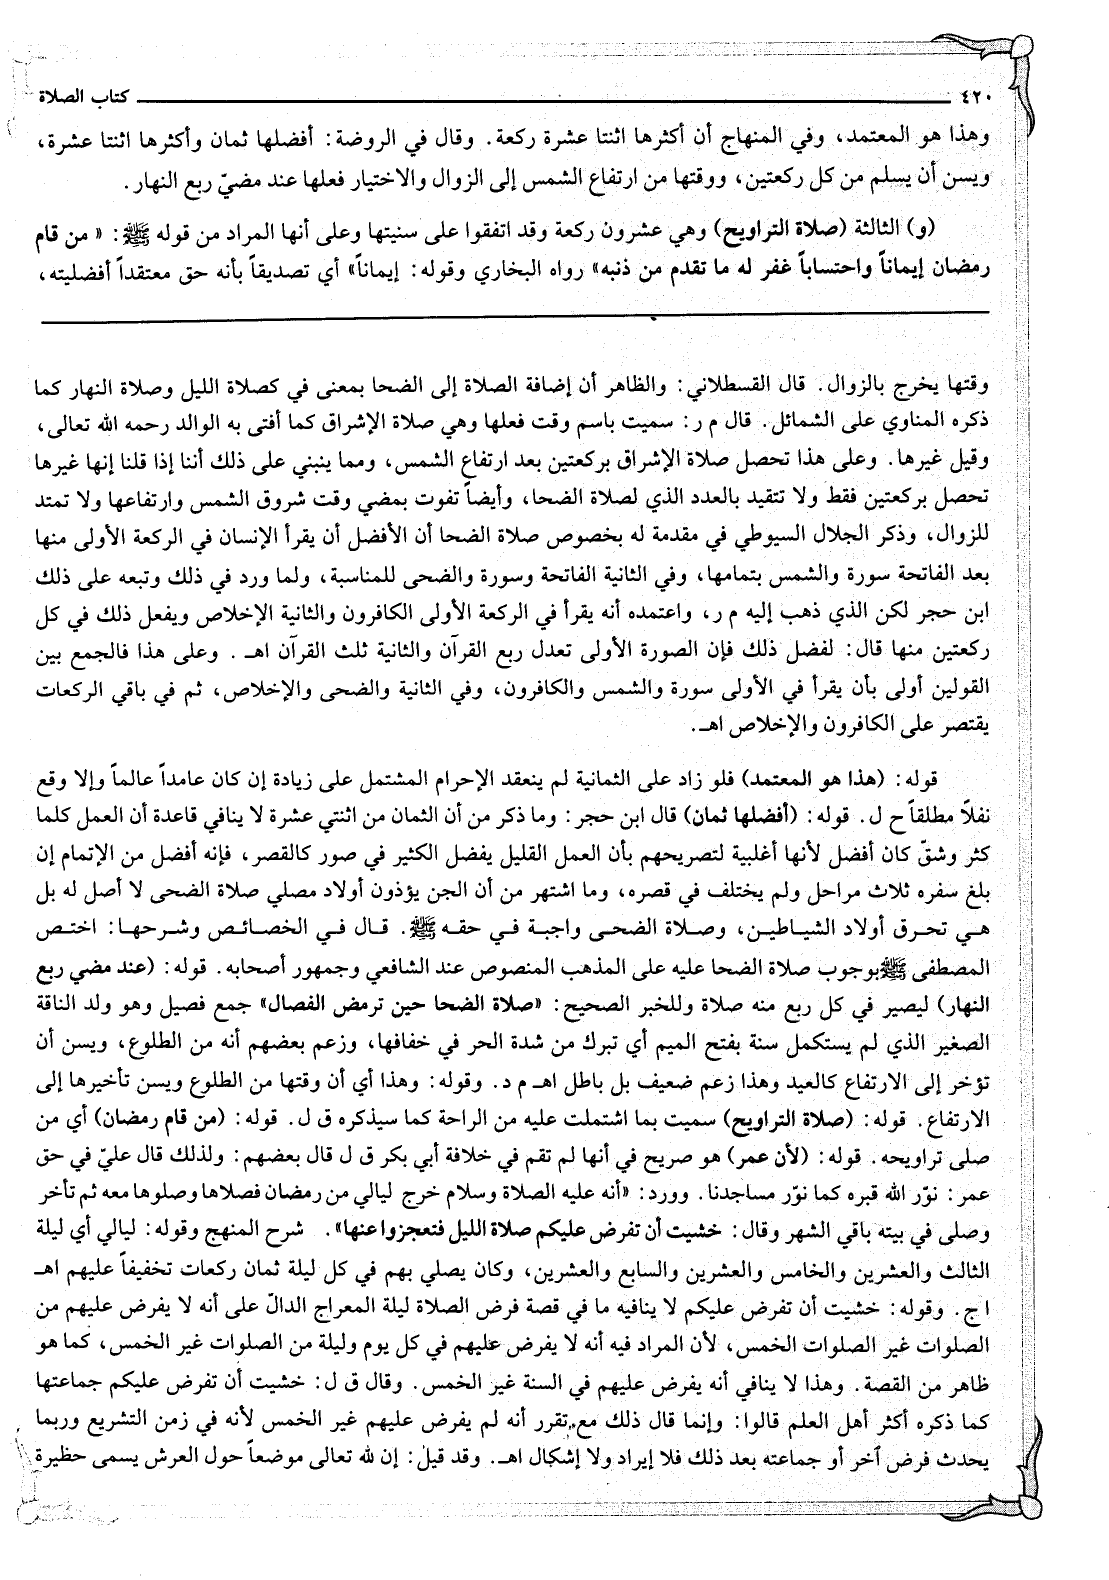 ٤٢٠ كتاب الصلاة
وهذا هو المعتمد، وفي المنهاج أن أكثرها اثنتا عشرة ركعة. وقال في الروضة: أفضلها ثمان وأكثرها اثنتا عشرة،
ويسن أن يسلم من كل ركعتين، ووقتها من ارتفاع الشمس إلى الزوال والاختيار فعلها عند مضيّ ربع النهار.
(و) الثالثة (صلاة التراويح) وهي عشرون ركعة وقد اتفقوا على سنيتها وعلى أنها المراد من قوله ﷺ: «من قام
رمضان إيماناً واحتساباً غفر له ما تقدم من ذنبه» رواه البخاري وقوله: إيماناً» أي تصديقاً بأنه حق معتقداً أفضليته،
وقتها يخرج بالزوال. قال القسطلاني: والظاهر أن إضافة الصلاة إلى الضحا بمعنى في كصلاة الليل وصلاة النهار كما
ذكره المناوي على الشمائل. قال م ر: سميت باسم وقت فعلها وهي صلاة الإشراق كما أفتى به الوالد رحمه الله تعالى،
وقيل غيرها. وعلى هذا تحصل صلاة الإشراق بركعتين بعد ارتفاع الشمس، ومما ينبني على ذلك أننا إذا قلنا إنها غيرها
تحصل بركعتين فقط ولا تتقيد بالعدد الذي لصلاة الضحا، وأيضاً تفوت بمضي وقت شروق الشمس وارتفاعها ولا تمتد
للزوال، وذكر الجلال السيوطي في مقدمة له بخصوص صلاة الضحا أن الأفضل أن يقرأ الإنسان في الركعة الأولى منها
بعد الفاتحة سورة والشمس بتمامها، وفي الثانية الفاتحة وسورة والضحى للمناسبة، ولما ورد في ذلك وتبعه على ذلك
ابن حجر لكن الذي ذهب إليه م ر، واعتمده أنه يقرأ في الركعة الأولى الكافرون والثانية الإخلاص ويفعل ذلك في كل
ركعتين منها قال: لفضل ذلك فإن الصورة الأولى تعدل ربع القرآن والثانية ثلث القرآن اهـ. وعلى هذا فالجمع بين
القولين أولى بأن يقرأ في الأولى سورة والشمس والكافرون، وفي الثانية والضحى والإخلاص، ثم في باقي الركعات
يقتصر على الكافرون والإخلاص اهـ.
قوله: (هذا هو المعتمد) فلو زاد على الثمانية لم ينعقد الإحرام المشتمل على زيادة إن كان عامداً عالماً وإلا وقع
نفلاً مطلقاً ح ل. قوله: (أفضلها ثمان) قال ابن حجر: وما ذكر من أن الثمان من اثنتي عشرة لا ينافي قاعدة أن العمل كلما
كثر وشقّ كان أفضل لأنها أغلبية لتصريحهم بأن العمل القليل يفضل الكثير في صور كالقصر، فإنه أفضل من الإتمام إن
بلغ سفره ثلاث مراحل ولم يختلف في قصره، وما اشتهر من أن الجن يؤذون أولاد مصلي صلاة الضحى لا أصل له بل
هي تحرق أولاد الشياطين، وصلاة الضحى واجبة في حقه ﷺ. قال في الخصائص وشرحها: اختص
المصطفى ﷺ بوجوب صلاة الضحا عليه على المذهب المنصوص عند الشافعي وجمهور أصحابه. قوله: (عند مضي ربع
النهار) ليصير في كل ربع منه صلاة وللخبر الصحيح: «صلاة الضحا حين ترمض الفصال» جمع فصيل وهو ولد الناقة
الصغير الذي لم يستكمل سنة بفتح الميم أي تبرك من شدة الحر في خفافها، وزعم بعضهم أنه من الطلوع، ويسن أن
تؤخر إلى الارتفاع كالعيد وهذا زعم ضعيف بل باطل اهـ م د. وقوله: وهذا أي أن وقتها من الطلوع ويسن تأخيرها إلى
الارتفاع. قوله: (صلاة التراويح) سميت بما اشتملت عليه من الراحة كما سيذكره ق ل. قوله: (من قام رمضان) أي من
صلى تراويحه. قوله: (لأن عمر) هو صريح في أنها لم تقم في خلافة أبي بكر ق ل قال بعضهم: ولذلك قال عليّ في حق
عمر: نوّر الله قبره كما نوّر مساجدنا. وورد: «أنه عليه الصلاة وسلام خرج ليالي من رمضان فصلاها وصلوها معه ثم تأخر
وصلى في بيته باقي الشهر وقال: خشيت أن تفرض عليكم صلاة الليل فتعجزوا عنها». شرح المنهج وقوله: ليالي أي ليلة
الثالث والعشرين والخامس والعشرين والسابع والعشرين، وكان يصلي بهم في كل ليلة ثمان ركعات تخفيفاً عليهم اهـ
ا ج. وقوله: خشيت أن تفرض عليكم لا ينافيه ما في قصة فرض الصلاة ليلة المعراج الدالّ على أنه لا يفرض عليهم من
الصلوات غير الصلوات الخمس، لأن المراد فيه أنه لا يفرض عليهم في كل يوم وليلة من الصلوات غير الخمس، كما هو
ظاهر من القصة. وهذا لا ينافي أنه يفرض عليهم في السنة غير الخمس. وقال ق ل: خشيت أن تفرض عليكم جماعتها
كما ذكره أكثر أهل العلم قالوا: وإنما قال ذلك مع تقرر أنه لم يفرض عليهم غير الخمس لأنه في زمن التشريع وربما
يحدث فرض آخر أو جماعته بعد ذلك فلا إيراد ولا إشكال اهـ. وقد قيل: إن لله تعالى موضعاً حول العرش يسمى حظيرة